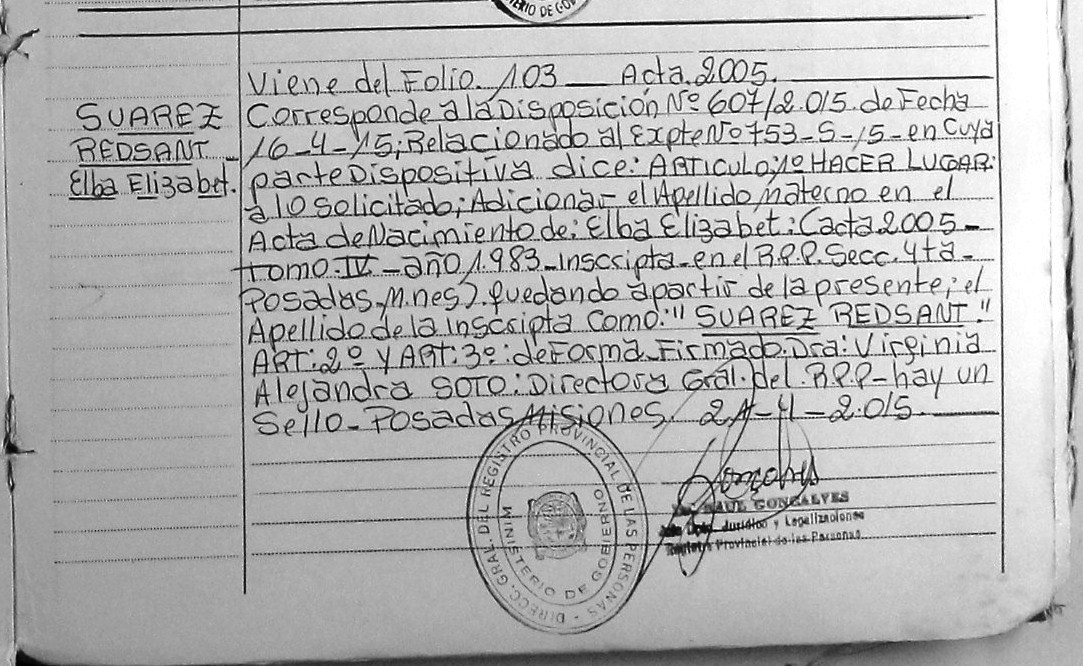 TERIO DE GOB
Viene del Folio. 103 Acta. 2005.
SUAREZ
REDSANT
Elba Elizabet.
Corresponde a la Disposición Nº 607/2.015. de Fecha
16-4-15; Relacionado al Expte Nº 753-S-15-en Cuya
parte Dispositiva dice: ARTICULO: 1º HACER LUGAR:
a lo solicitado; Adicionar el Apellido materno en el
Acta de Nacimiento de: Elba Elizabet: (acta 2005-
tomo-IV-año 1.983-Inscripta-en el R.P.P. Secc. 4ta-
Posadas, M.nes). quedando a partir de la presente; el
Apellido de la Inscripta Como: "SUAREZ REDSANT."
ART: 2º y ART: 3º: de Forma. Firmado. Dra: Virginia
Alejandra SOTO: Directora Gral. Del. R.P.P-hay un
Sello-Posadas, Misiones, 21-4-2.015.
DIRECC. GRAL DEL REGISTRO PROVINCIAL DE LAS PERSONAS
MINISTERIO DE GOBIERNO
Gonçalves
RAUL GONCALVES
Dpto. Jurídico y Legalizaciones
Registro Provincial de las Personas